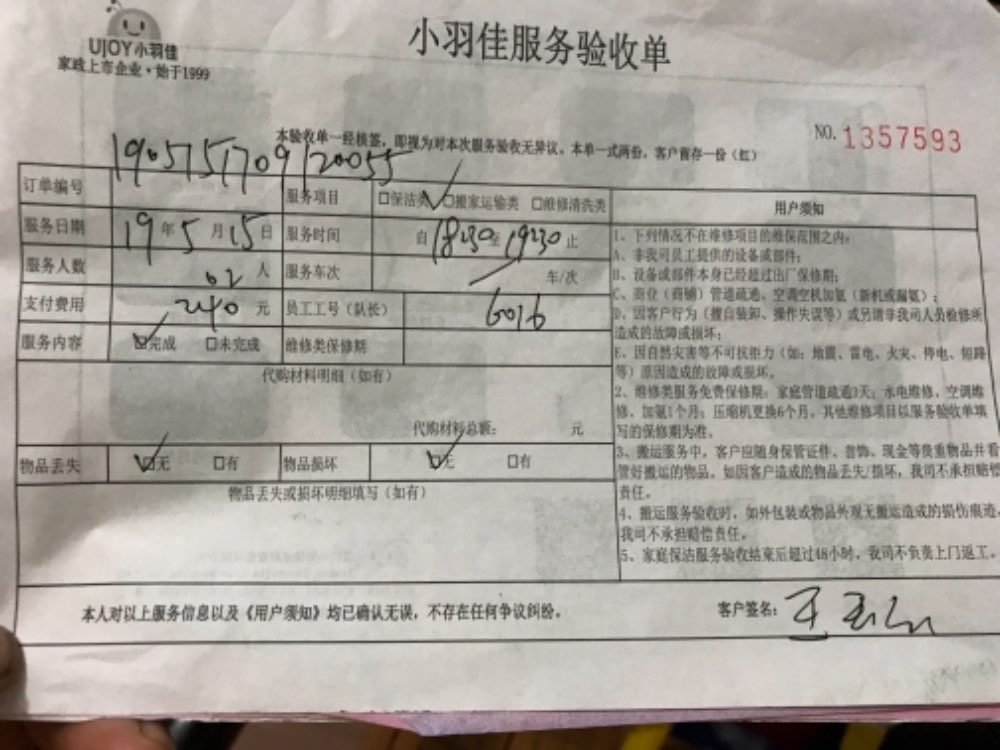 UJOY小羽佳
家政上市企业·始于1999
小羽佳服务验收单
本验收单一经核签，即视为对本次服务验收无异议。本单一式两份，客户留存一份（红）
NO. 1357593
订单编号 190515170912005 服务项目 □保洁类 □搬家运输类 □维修清洗类
服务日期 19年5月15日 服务时间 自18:30至19:30止
服务人数 02人 服务车次 车/次
支付费用 240元 员工工号（队长） 6016
服务内容 □完成 □未完成 维修类保修期
代购材料明细（如有）
代购材料总额： 元
物品丢失 □无 □有 物品损坏 □无 □有
物品丢失或损坏明细填写（如有）
用户须知
1、下列情况不在维修项目的维保范围之内。
A、非我司员工提供的设备或部件；
B、设备或部件本身已经超过出厂保修期；
C、商位（商铺）管道疏通、空调空机加氨（新机或漏氨）；
D、因客户行为（擅自装卸、操作失误等）或另请非我司人员检修所
造成的故障或损坏；
E、因自然灾害等不可抗拒力（如：地震、雷电、火灾、停电、短路
等）原因造成的故障或损坏。
2、维修类服务免费保修期：家庭管道疏通3天；水电维修、空调维
修、加氨1个月；压缩机更换6个月，其他维修项目以服务验收单填
写的保修期为准。
3、搬运服务中，客户应随身保管证件、首饰、现金等贵重物品并看
管好搬运的物品，如因客户造成的物品丢失/损坏，我司不承担赔偿
责任。
4、搬运服务验收时，如外包装或物品外观无搬运造成的损伤痕迹，
我司不承担赔偿责任。
5、家庭保洁服务验收结束后超过48小时，我司不负责上门返工。
本人对以上服务信息以及《用户须知》均已确认无误，不存在任何争议纠纷。
客户签名：